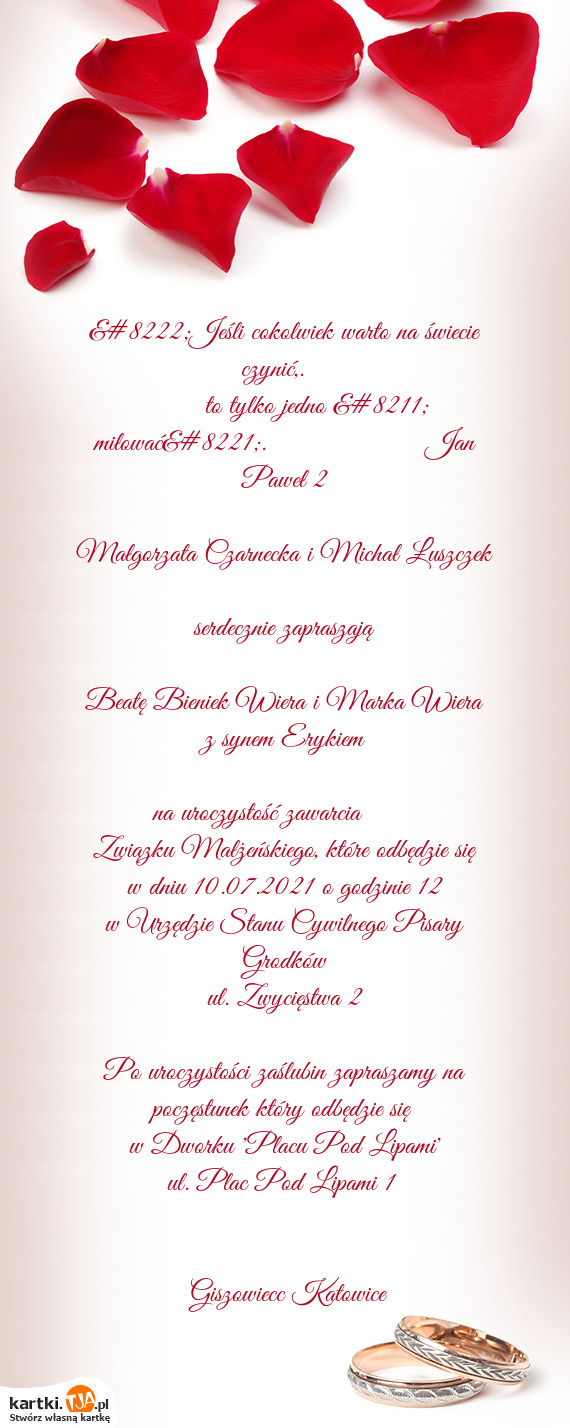 &#8222;Jeśli cokolwiek warto na świecie
czynić,.
to tylko jedno &#8211;
miłować&#8221;. Jan
Paweł 2
Małgorzata Czarnecka i Michał Łuszczek
serdecznie zapraszają
Beatę Bieniek Wiera i Marka Wiera
z synem Erykiem
na uroczystość zawarcia
Związku Małżeńskiego, które odbędzie się
w dniu 10.07.2021 o godzinie 12
w Urzędzie Stanu Cywilnego Pisary
Grodków
ul. Zwycięstwa 2
Po uroczystości zaślubin zapraszamy na
poczęstunek który odbędzie się
w Dworku 'Placu Pod Lipami'
ul. Plac Pod Lipami 1
Giszowiecc Katowice
kartki.TJA.pl
Stwórz własną kartkę